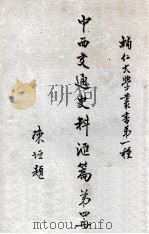 輔仁大學叢書第一種
中西交通史料匯篇第四冊
陳垣題
mtoou.info